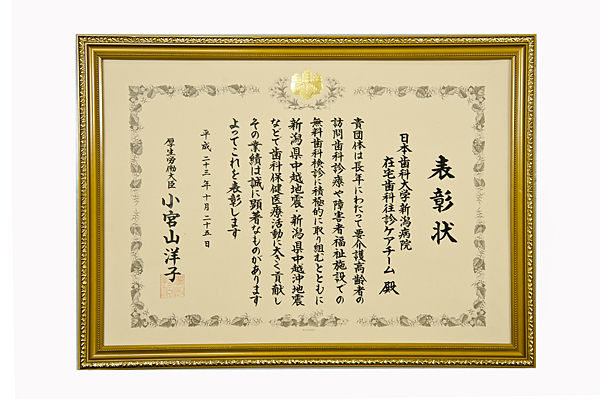 表彰状
日本歯科大学新潟病院
在宅歯科往診ケアチーム 殿
貴団体は長年にわたって要介護高齢者の
訪問歯科診療や障害者福祉施設での
無料歯科検診に積極的に取り組むとともに
新潟県中越地震、新潟県中越沖地震
などで歯科保健医療活動に大きく貢献し
その業績は誠に顕著なものがあります
よってこれを表彰します
平成二十三年十月二十五日
厚生労働大臣 小宮山洋子